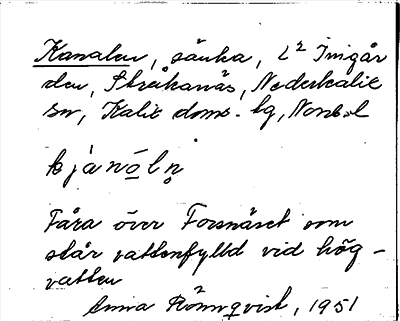 Kanalen, sänka, L² Inigår
den, Stråkanäs, Nederkalix
sn, Kalix doms. tg, Norrb. l
kjanα̱ln̥
Fåra över Forsnäset som
står vattenfylld vid hög-
vatten
Anna Rönnqvist, 1951